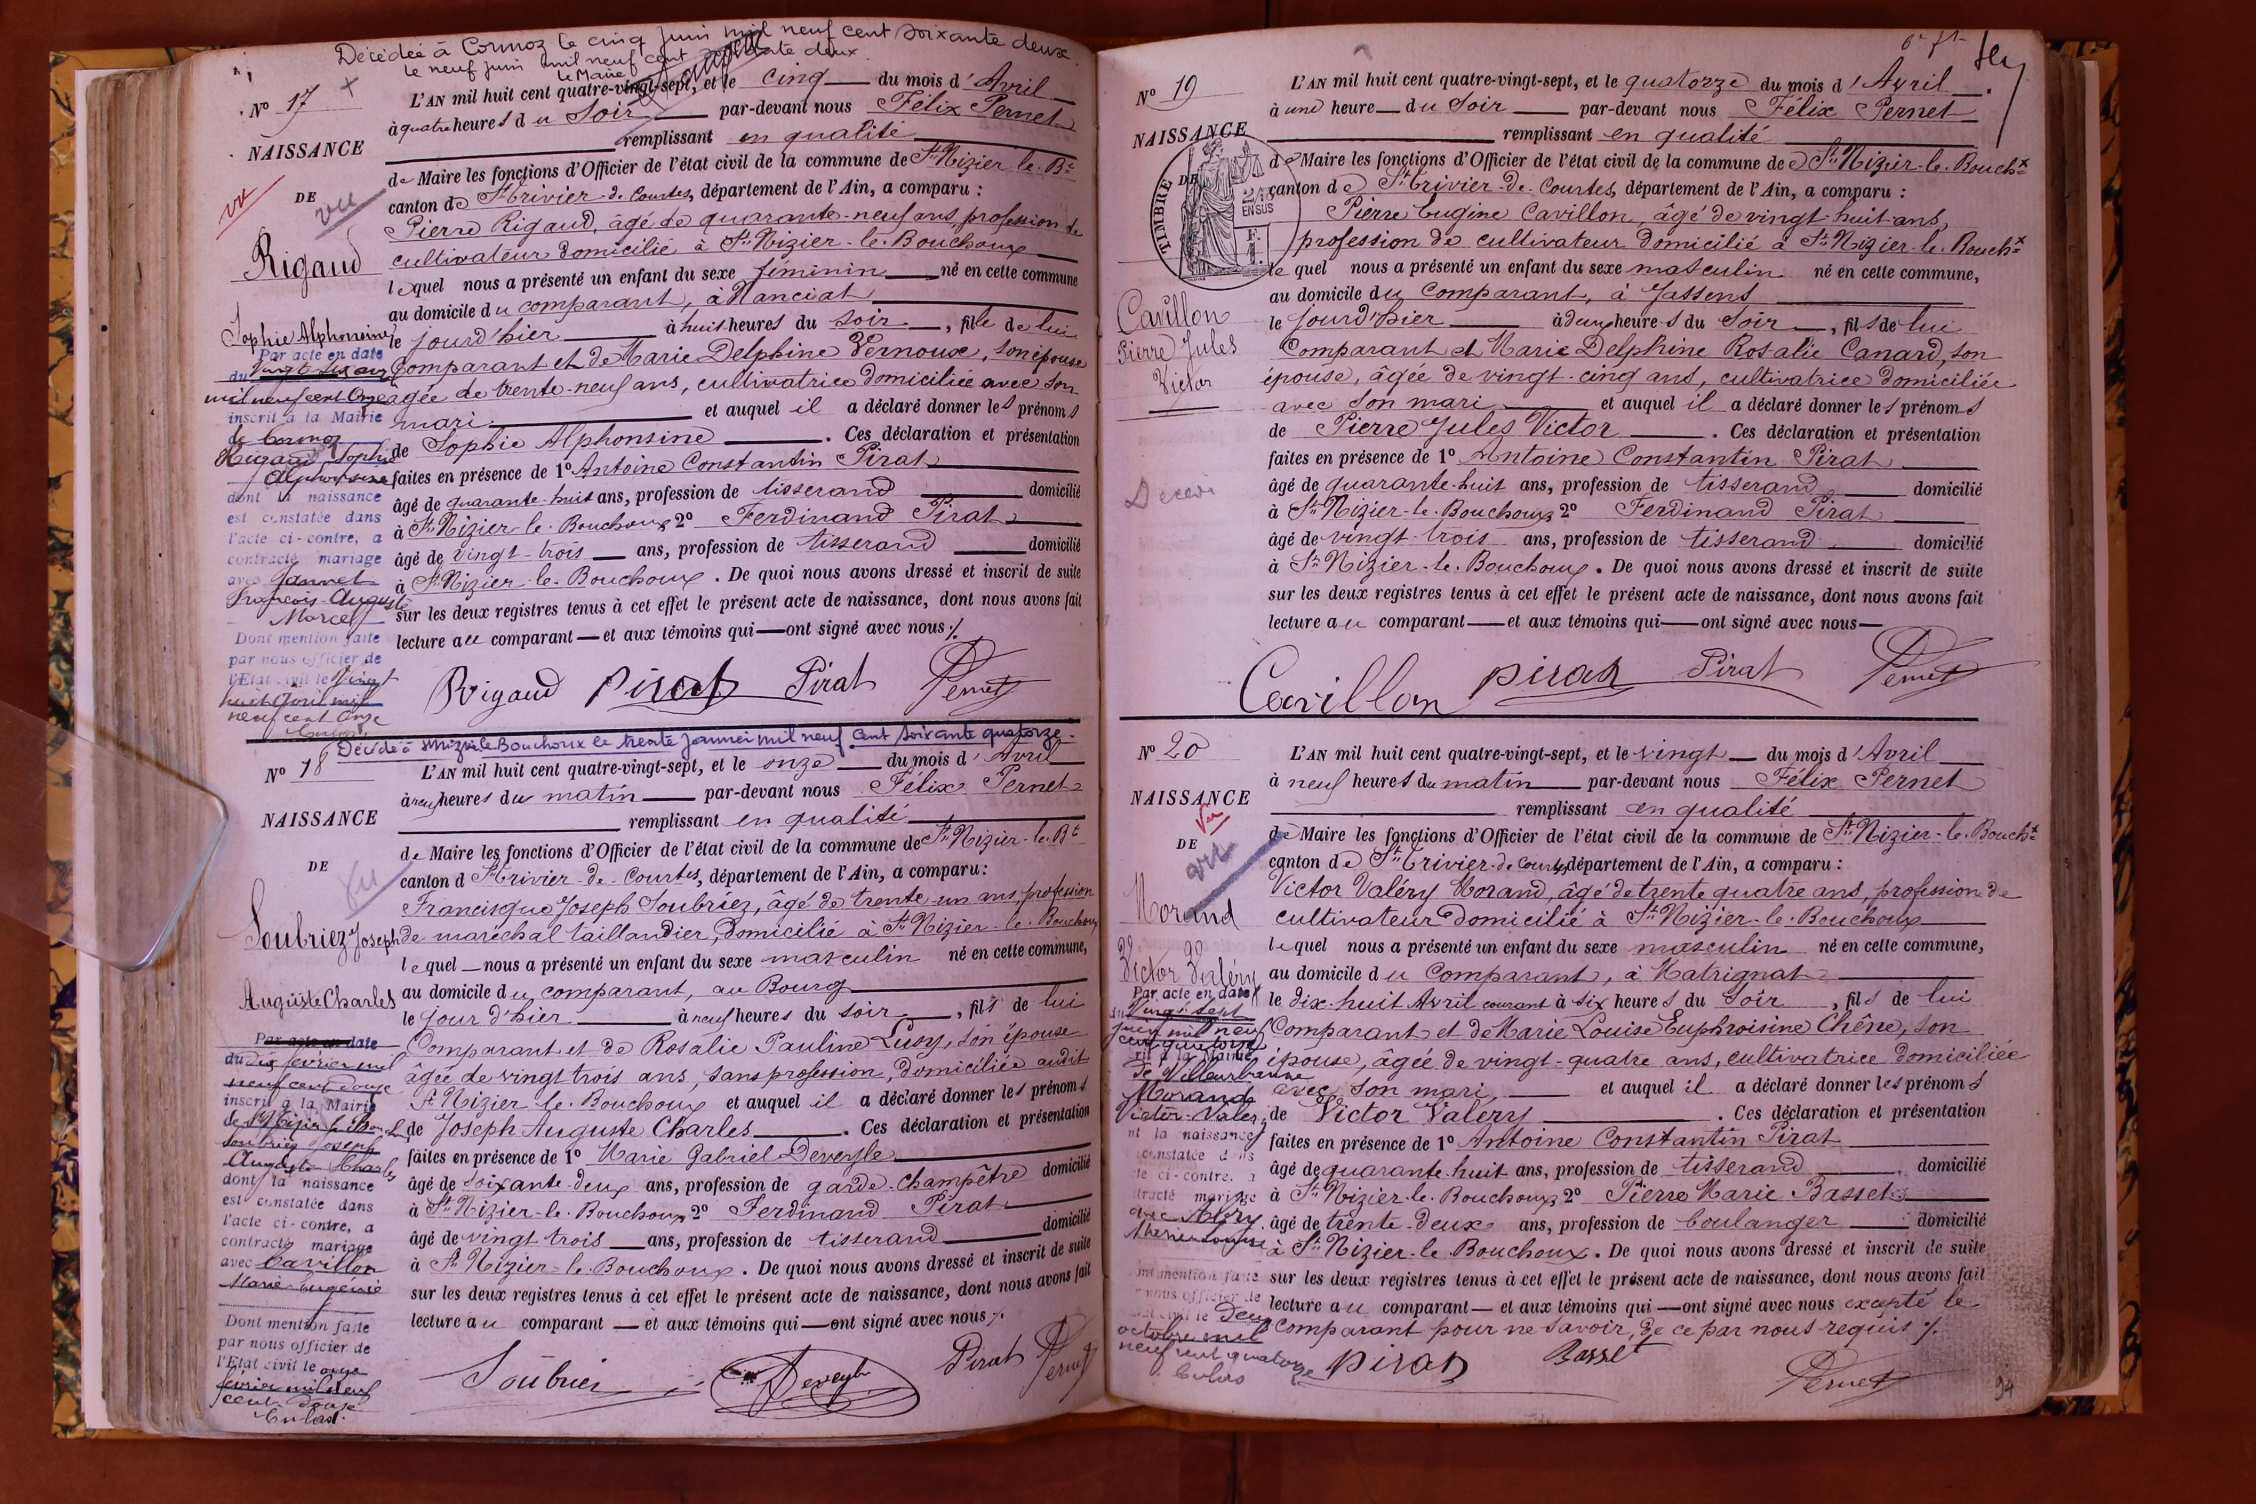 Décédée à Cormoz le cinq juin mil neuf cent soixante deux
le neuf juin mil neuf cent soixante deux
le Maire
N° 17
NAISSANCE
DE
vu
Rigaud
Sophie Alphonsine
Par acte en date
du Vingt six avril
mil neuf cent Onze
inscrit à la Mairie
de Cormoz
Rigaud Sophie
Alphonsine
dont la naissance
est constatée dans
l'acte ci-contre, a
contracté mariage
avec Jannet
François Auguste
Marcel
Dont mention faite
par nous officier de
l'Etat civil le Vingt
huit Avril mil
neuf cent Onze
L'AN mil huit cent quatre-vingt-sept, et le cinq du mois d'Avril
à quatre heures du Soir par-devant nous Félix Pernet
remplissant en qualité
de Maire les fonctions d'Officier de l'état civil de la commune de St Nizier-le-Bt
canton de St Trivier-de-Courtes, département de l'Ain, a comparu :
Pierre Rigaud, âgé de quarante-neuf ans, profession de
cultivateur domicilié à St Nizier-le-Bouchoux
lequel nous a présenté un enfant du sexe féminin né en cette commune
au domicile du comparant, à Nanciat
le jourd'hier à huit heures du soir, fille de lui
Comparant et de Marie Delphine Vernoux, son épouse
âgée de trente-neuf ans, cultivatrice domiciliée avec son
mari et auquel il a déclaré donner les prénoms
de Sophie Alphonsine. Ces déclaration et présentation
faites en présence de 1° Antoine Constantin Pirat
âgé de quarante-huit ans, profession de tisserand domicilié
à St Nizier-le-Bouchoux 2° Ferdinand Pirat
âgé de vingt-trois ans, profession de tisserand domicilié
à St Nizier-le-Bouchoux. De quoi nous avons dressé et inscrit de suite
sur les deux registres tenus à cet effet le présent acte de naissance, dont nous avons fait
lecture au comparant et aux témoins qui ont signé avec nous
Rigaud Pirat Pirat Pernet
Décédé à St Nizier le Bouchoux le trente janvier mil neuf cent soixante quatorze.
N° 18
NAISSANCE
DE
vu
Soubriez Joseph
Auguste Charles
Par acte en date
du dix février mil
neuf cent douze
inscrit à la Mairie
de St Nizier le Bouchoux
Soubriez Joseph
Auguste Charles
dont la naissance
est constatée dans
l'acte ci-contre, a
contracté mariage
avec Cavillon
Marie Eugénie
Dont mention faite
par nous officier de
l'Etat civil le onze
février mil neuf
cent douze
L'AN mil huit cent quatre-vingt-sept, et le onze du mois d'Avril
à neuf heures du matin par-devant nous Félix Pernet
remplissant en qualité
de Maire les fonctions d'Officier de l'état civil de la commune de St Nizier-le-Bt
canton d St Trivier-de-Courtes, département de l'Ain, a comparu :
Francisque Joseph Soubriez, âgé de trente-un ans, profession
de maréchal taillandier, domicilié à St Nizier-le-Bouchoux
lequel nous a présenté un enfant du sexe masculin né en cette commune,
au domicile du comparant, au Bourg
le jour d'hier à neuf heures du soir, fils de lui
Comparant et de Rosalie Pauline Lusy, son épouse
âgée de vingt trois ans, sans profession, domiciliée audit
St Nizier-le-Bouchoux et auquel il a déclaré donner les prénoms
de Joseph Auguste Charles. Ces déclaration et présentation
faites en présence de 1° Marie Gabriel Deveyle
âgé de soixante-deux ans, profession de garde-champêtre domicilié
à St Nizier-le-Bouchoux 2° Ferdinand Pirat
âgé de vingt trois ans, profession de tisserand domicilié
à St Nizier-le-Bouchoux. De quoi nous avons dressé et inscrit de suite
sur les deux registres tenus à cet effet le présent acte de naissance, dont nous avons fait
lecture au comparant et aux témoins qui ont signé avec nous
Soubriez Deveyle Pirat Pernet
N° 19
NAISSANCE
DE
TIMBRE
2/10 EN SUS
Cavillon
Pierre Jules
Victor
Décédé
L'AN mil huit cent quatre-vingt-sept, et le quatorze du mois d'Avril.
à une heure du Soir par-devant nous Félix Pernet
remplissant en qualité
de Maire les fonctions d'Officier de l'état civil de la commune de St Nizier-le-Bouchx
canton de St Trivier-de-Courtes, département de l'Ain, a comparu :
Pierre Eugène Cavillon, âgé de vingt-huit ans,
profession de cultivateur domicilié à St Nizier-le-Bouchx
lequel nous a présenté un enfant du sexe masculin né en cette commune,
au domicile du Comparant, à Jassens
le jourd'hier à deux heures du Soir, fils de lui
Comparant et Marie Delphine Rosalie Canard, son
épouse, âgée de vingt-cinq ans, cultivatrice domiciliée
avec son mari et auquel il a déclaré donner les prénoms
de Pierre Jules Victor. Ces déclaration et présentation
faites en présence de 1° Antoine Constantin Pirat
âgé de quarante-huit ans, profession de tisserand domicilié
à St Nizier-le-Bouchoux 2° Ferdinand Pirat
âgé de vingt-trois ans, profession de tisserand domicilié
à St Nizier-le-Bouchoux. De quoi nous avons dressé et inscrit de suite
sur les deux registres tenus à cet effet le présent acte de naissance, dont nous avons fait
lecture au comparant et aux témoins qui ont signé avec nous
Cavillon Pirat Pirat Pernet
N° 20
NAISSANCE
DE
vu
Morand
Victor Valéry
Par acte en date
Vingt-sept
juin mil neuf
cent quatorze
de Villeurbanne
Morand
Victor-Valéry
la naissance
constatée
ci-contre, a
mariage
avec
mention faite
nous officier de
civil le Deux
octobre mil
neuf cent quatorze
L'AN mil huit cent quatre-vingt-sept, et le vingt du mois d'Avril
à neuf heures du matin par-devant nous Félix Pernet
remplissant en qualité
de Maire les fonctions d'Officier de l'état civil de la commune de St Nizier-le-Bouchx
canton de St Trivier-de-Courtes, département de l'Ain, a comparu :
Victor Valéry Morand, âgé de trente quatre ans, profession de
cultivateur domicilié à St Nizier-le-Bouchoux
lequel nous a présenté un enfant du sexe masculin né en cette commune,
au domicile du Comparant, à Matrignat
le dix-huit Avril courant à six heures du Soir, fils de lui
Comparant et de Marie Louise Euphroisine Chêne, son
épouse, âgée de vingt-quatre ans, cultivatrice domiciliée
avec son mari, et auquel il a déclaré donner les prénoms
de Victor Valéry. Ces déclaration et présentation
faites en présence de 1° Antoine Constantin Pirat
âgé de quarante-huit ans, profession de tisserand domicilié
à St Nizier-le-Bouchoux 2° Pierre Marie Basset
âgé de trente-deux ans, profession de boulanger domicilié
à St Nizier-le-Bouchoux. De quoi nous avons dressé et inscrit de suite
sur les deux registres tenus à cet effet le présent acte de naissance, dont nous avons fait
lecture au comparant et aux témoins qui ont signé avec nous excepté le
comparant pour ne savoir, de ce par nous requis
Pirat Basset Pernet
94